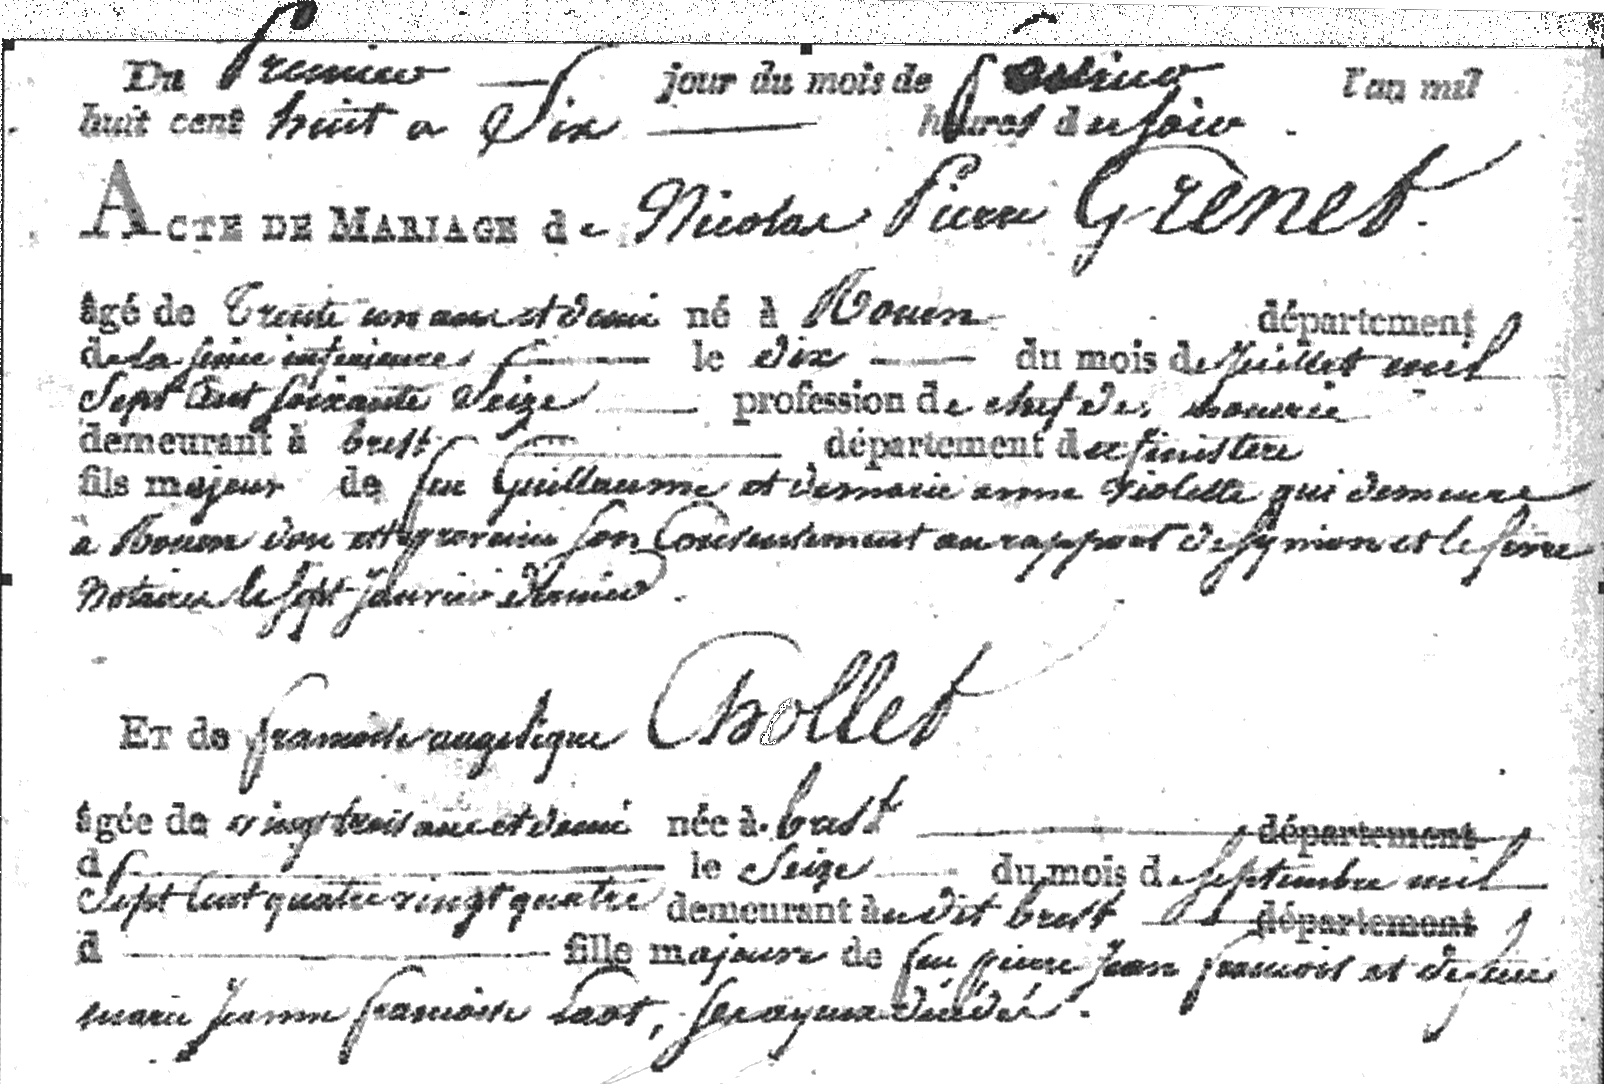 Du Premier jour du mois de fevrier l'an mil
huit cent huit a Six heures du soir.
ACTE DE MARIAGE de Nicolas Pierre Grenet.
âgé de Trente un ans et demi né à Rouen département
de la seine inferieure le dix du mois de Juillet mil
Sept Cent soixante Seize profession de chef de
demeurant à brest département du finistere
fils majeur de feu Guillaume et de marie anne violette qui demeure
a Rouen son Consentement au rapport de
Notaires le sept Janvier dernier.
ET de francoise angelique Chollet
âgée de vingt trois ans et demi née à brest département
d le Seize du mois de septembre mil
Sept Cent quatre vingt quatre demeurant au dit brest département
d fille majeure de feu pierre Jean francois et de feue
marie Jeanne francoise, ses ayeux décédés.